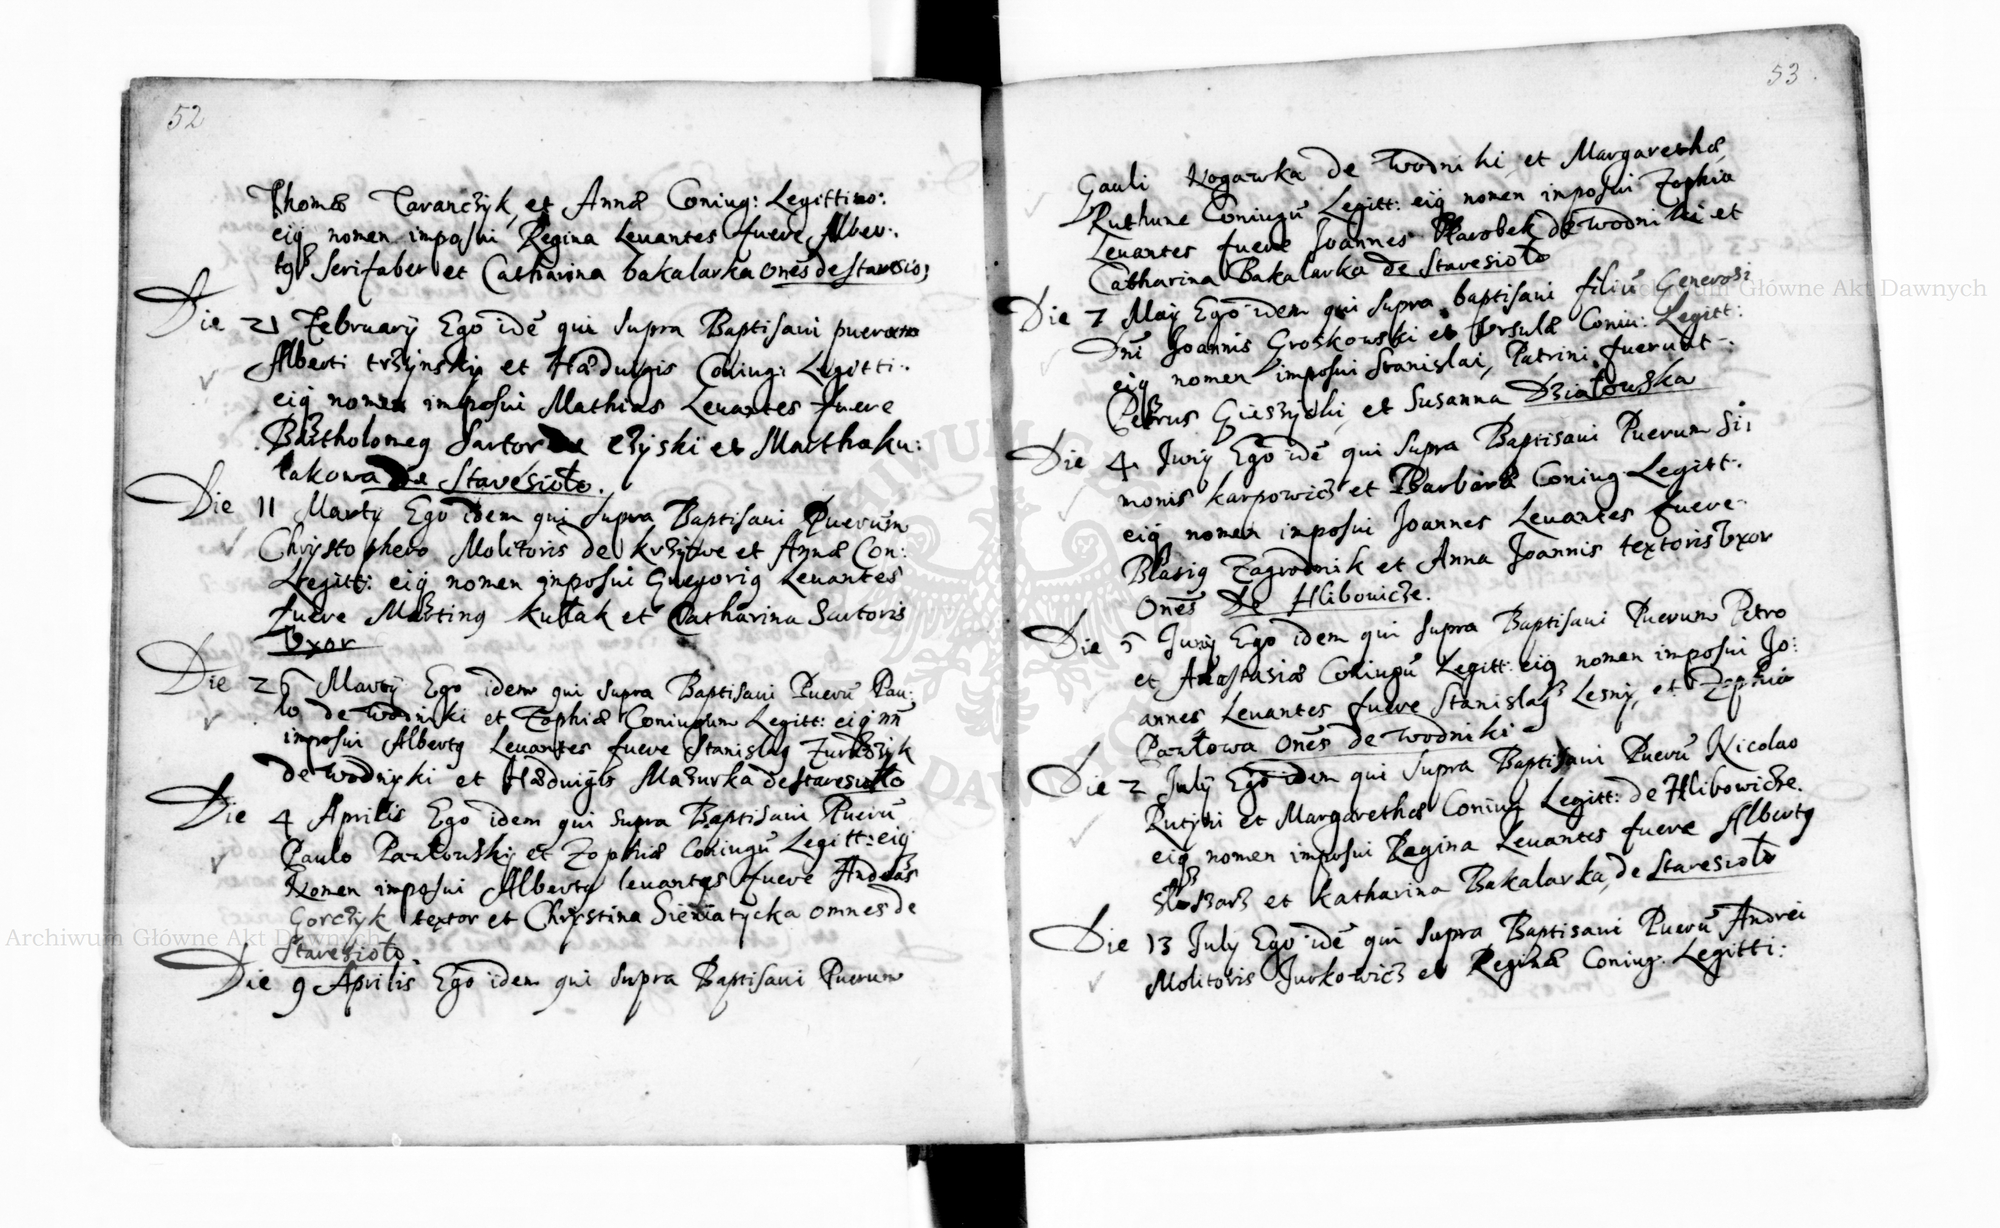 52
Thomæ Taranczyk et Annæ Coniug: Legittimo:
eiq nomen imposui Regina Leuantes fuere Alber:
tq Serifaber et Catharina bakalarka onẽs de Staresio;
Die 21 February Ego idẽ qui supra Baptisaui puerum
Alberti trzynsky et Hæduigis Coniug: Legitti:
eiq nomen imposui Mathias Leuantes fuere
Bartholomeq Sartor czyski et Martha ku:
lakowa de Staresioło.
Die 11 Marty Ego idem qui supra Baptisaui Puerum
Chrystophero Molitoris de krzywe et Annæ Con:
Legitt: eiq nomen imposui Gregoriq Leuantes
fuere Martinq kułak et Catharina Sartoris
Vxor
Die 25 Marty Ego idem qui supra Baptisaui Puerũ Pau:
lo de Wodniki et Zophiæ Coniugum Legitt: eiq nñ
imposui Albertq Leuantes fuere Stanislaq
de Wodnyki et Hæduigis Mazurka de Staresioło
Die 4 Aprilis Ego idem qui supra Baptisaui Puerũ
Paulo Pawłousky et Zophiæ Coniugũ Legitt: eiq
Nomen imposui Albertq leuantes fuere Andreas
Gorczyk textor et Chrystina Sieniatycka omnes de
Staresioło.
Die 9 Aprilis Ego idem qui supra Baptisaui Puerum
53
Gauli Nogawka de Wodniki et Margarethæ
Ruthene Coniugũ Legitt: eiq nomen imposui Zophia
Leuantes fuere Joannes Parobek de Wodniki et
Catharina Bakalarka de Staresioło
Die 7 May Ego idem qui supra baptisaui filiũ Generosi
Dñi Joannis Groskouski et Vrsulæ Coniu: Legitt:
eiq nomen imposui Stanislai, Patrini fuerunt
Petrus et Susanna Działouska
Die 4 Juny Ego idẽ qui supra Baptisaui Puerum Si:
monis karpowicz et Barbaræ Coniug Legitt.
eiq nomen imposui Joannes Leuantes fuere
Blasiq Zagrodnik et Anna Joannis textoris Vxor
Onẽs De Hlibouicze.
Die 5 Juny Ego idem qui supra Baptisaui Puerum Petro
et Anastasiæ Coniugũ Legitt: eiq nomen imposui Jo:
annes Leuantes fuere Stanislaq Lesny, et Zophia
Pawłowa Onẽs de Wodniki
Die 2 July Ego idem qui supra Baptisaui Puerũ Nicolao
et Margarethæ Coniug Legitt: de Hlibowicze.
eiq nomen imposui Regina Leuantes fuere Albertq
et katharina Bakalarka de Staresioło
Die 13 July Ego idẽ qui supra Baptisaui Puerũ Andrei
Molitoris Jurkowicz et Reginæ Coniug. Legitti:
Archiwum Główne Akt Dawnych
Archiwum Główne Akt Dawnych